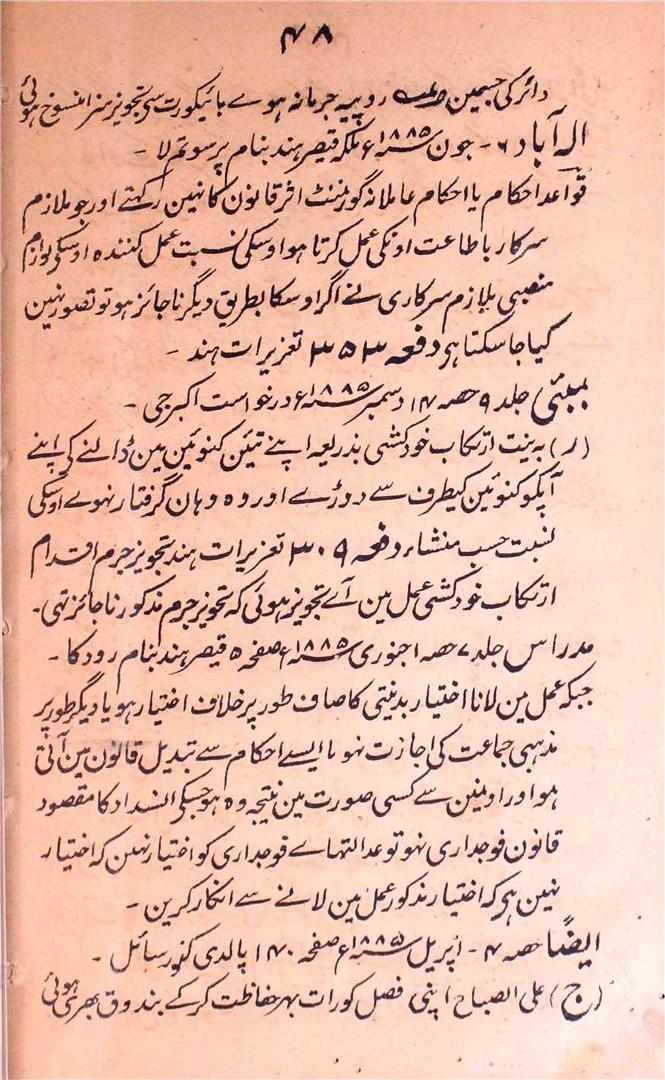 ۴۸
دائر کی جسمین روپیہ جرمانہ ہوے ہائیکورٹ سے تجویز سزا منسوخ ہوئی
الہ آباد ۶ - جون سنہ ۱۸۸۵ع ملکہ قیصر ہند بنام پرسوتم لا -
قواعد احکام یا احکام عاملانہ گورنمنٹ اثر قانون کا نہین رکہتے اور جو ملازم
سرکار باطاعت اونکی عمل کرتا ہو اوسکی نسبت عمل کنندہ اوسکی لوازم
منصبی بلازم سرکاری نے اگر اوسکا بطریق دیگر ناجائز ہو تو تصور نہین
کیا جا سکتا ہی دفعہ ۳۵۳ تعزیرات ہند -
بمبئی جلد ۹ حصہ ۱۴ دسمبر سنہ ۱۸۸۵ع درخواست اکبر جی -
(ر) بہ نیت ارتکاب خودکشی بذریعہ اپنے تئین کنوئین مین ڈالنے کی اپنے
آپکو کنوئین کیطرف سے دوڑے اور وہ وہان گرفتار نہوے اوسکی
نسبت حسب منشاء دفعہ ۳۰۹ تعزیرات ہند تجویز جرم اقدام
ارتکاب خودکشی عمل مین آے تجویز ہوئی کہ تجویز جرم مذکور ناجائز تہی -
مدراس جلد ۷ حصہ ۱ جنوری سنہ ۱۸۸۵ع صفحہ ۵ قیصر ہند بنام رودکا -
جبکہ عمل مین لانا اختیار بدنیتی کا صاف طور پر خلاف اختیار ہو یا دیگر طور پر
مذہبی جماعت کی اجازت نہو یا ایسے احکام سے تبدیل قانون مین آتی
ہو اور اونمین سے کسی صورت مین نتیجہ وہ ہو جسکی انسداد کا مقصود
قانون فوجداری نہو تو عدالتہاے فوجداری کو اختیار نہین کہ اختیار
نہین ہی کہ اختیار مذکور عمل مین لانے سے انکار کرین -
ایضاً حصہ ۴ - اپریل سنہ ۱۸۸۵ع صفحہ ۱۴۰ پالدی کنور سائل -
(ج) علی الصباح اپنی فصل کو رات بہر حفاظت کر کے بندوق بہری ہوئی